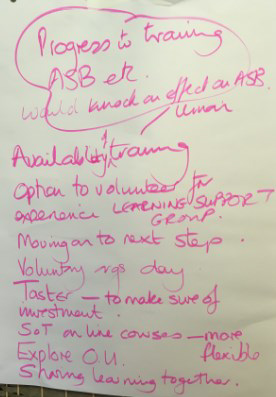 Progress to training
ASB etc.
would knock on effect on ASB.
Union
Availability training
Option to volunteer for
experience LEARNING SUPPORT
GROUP.
Moving on to next step.
Voluntary orgs day
Taster – to make sure of
investment.
on line courses – more
flexible
Explore O.U.
Sharing learning together.